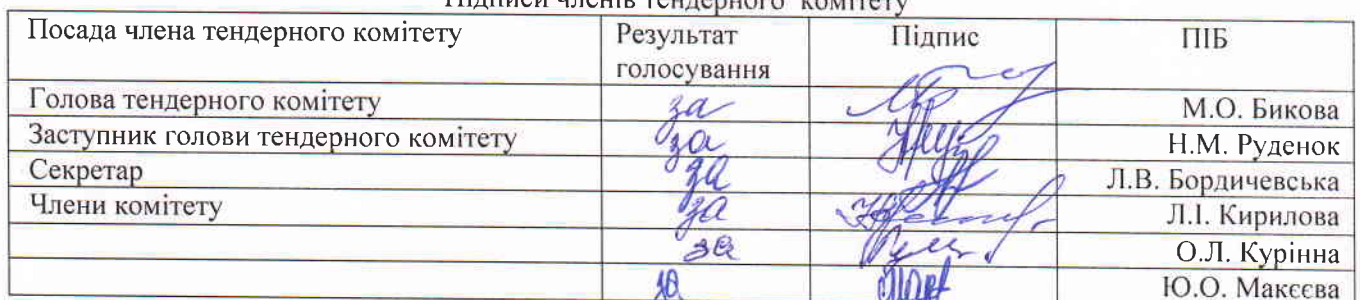 Підписи членів тендерного комітету
Посада члена тендерного комітету Результат голосування Підпис ПІБ
Голова тендерного комітету за М.О. Бикова
Заступник голови тендерного комітету за Н.М. Руденок
Секретар за Л.В. Бордичевська
Члени комітету за Л.І. Кирилова
за О.Л. Курінна
за Ю.О. Макєєва